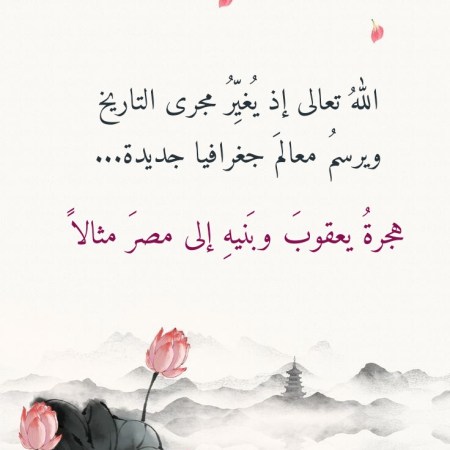 اللهُ تعالى إذ يُغيِّرُ مجرى التاريخ
ويرسمُ معالمَ جغرافيا جديدة...
هجرةُ يعقوبَ وبَنيهِ إلى مصرَ مثالاً